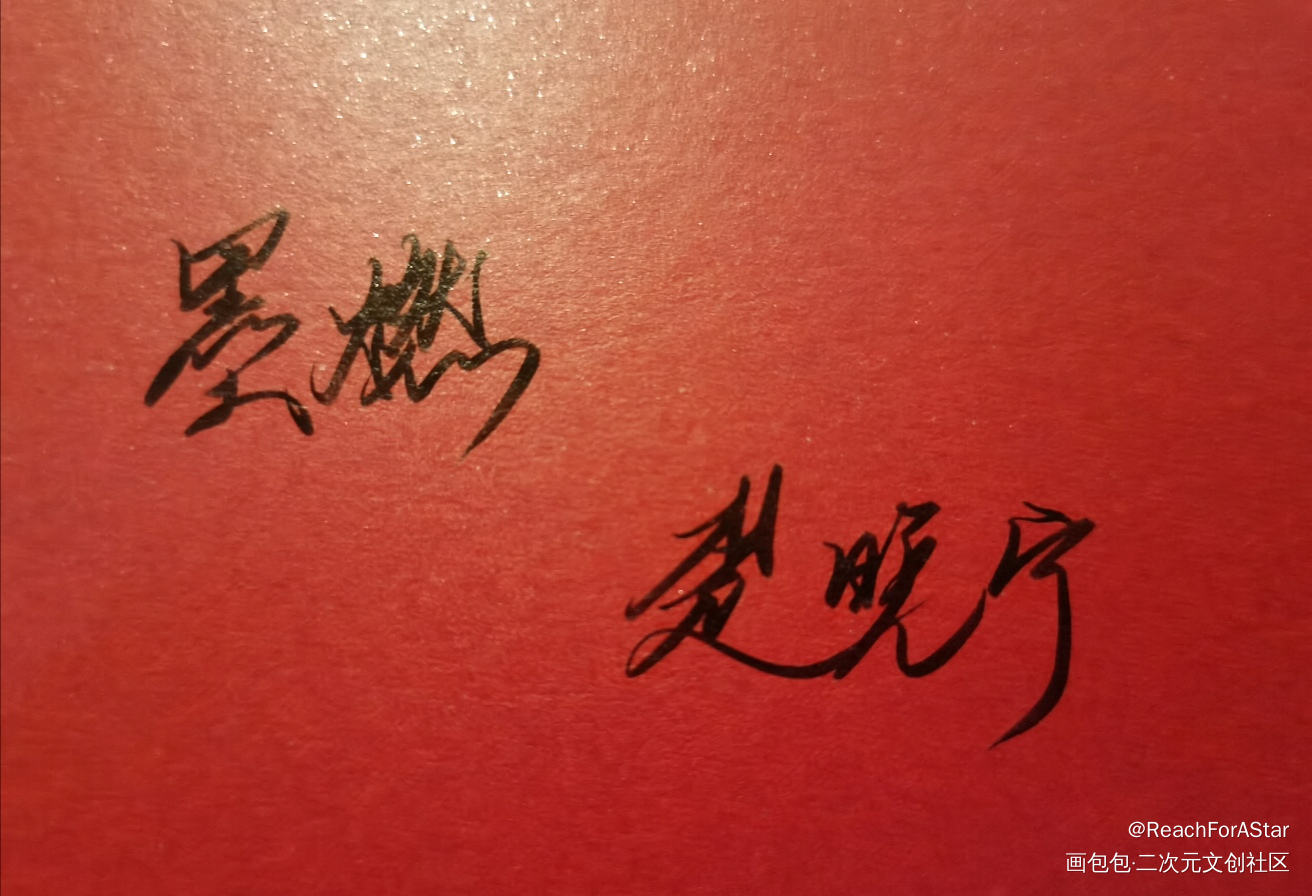 墨燃
楚晚宁
@ReachForAStar
画包包·二次元文创社区